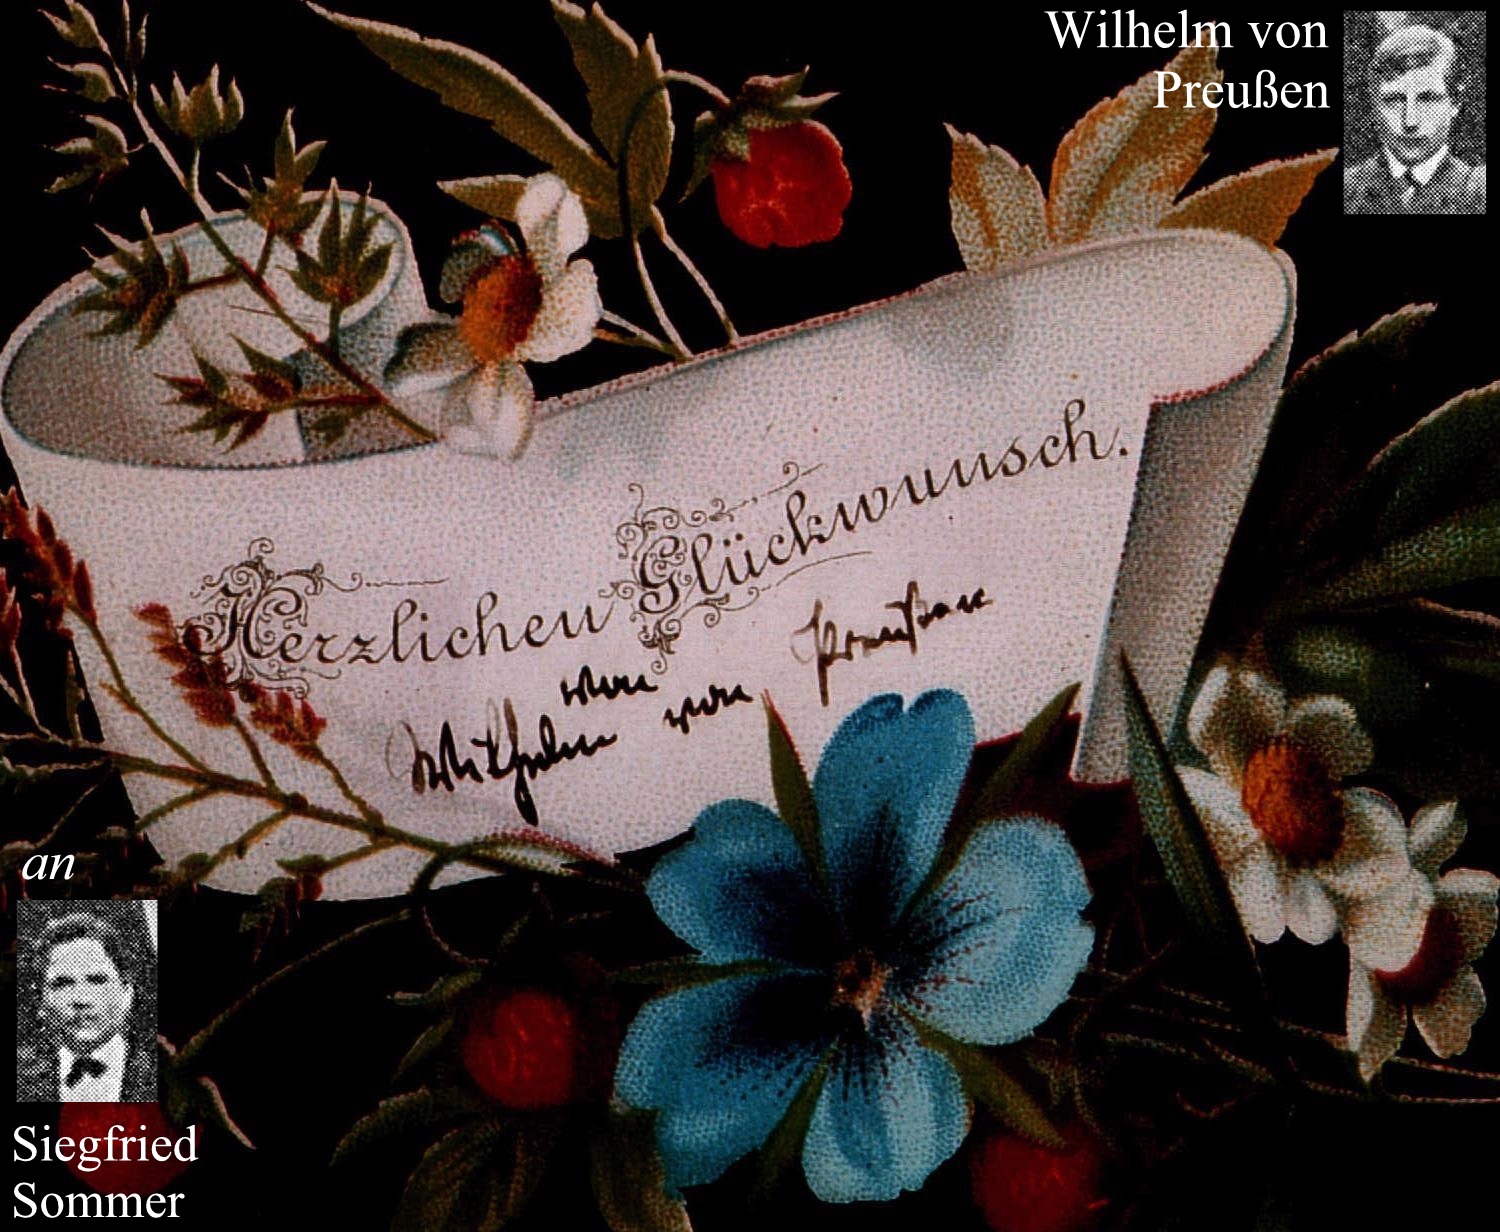 Wilhelm von
Preußen
Herzlichen Glückwunsch.
von
Wilhelm von Preußen
an
Siegfried
Sommer